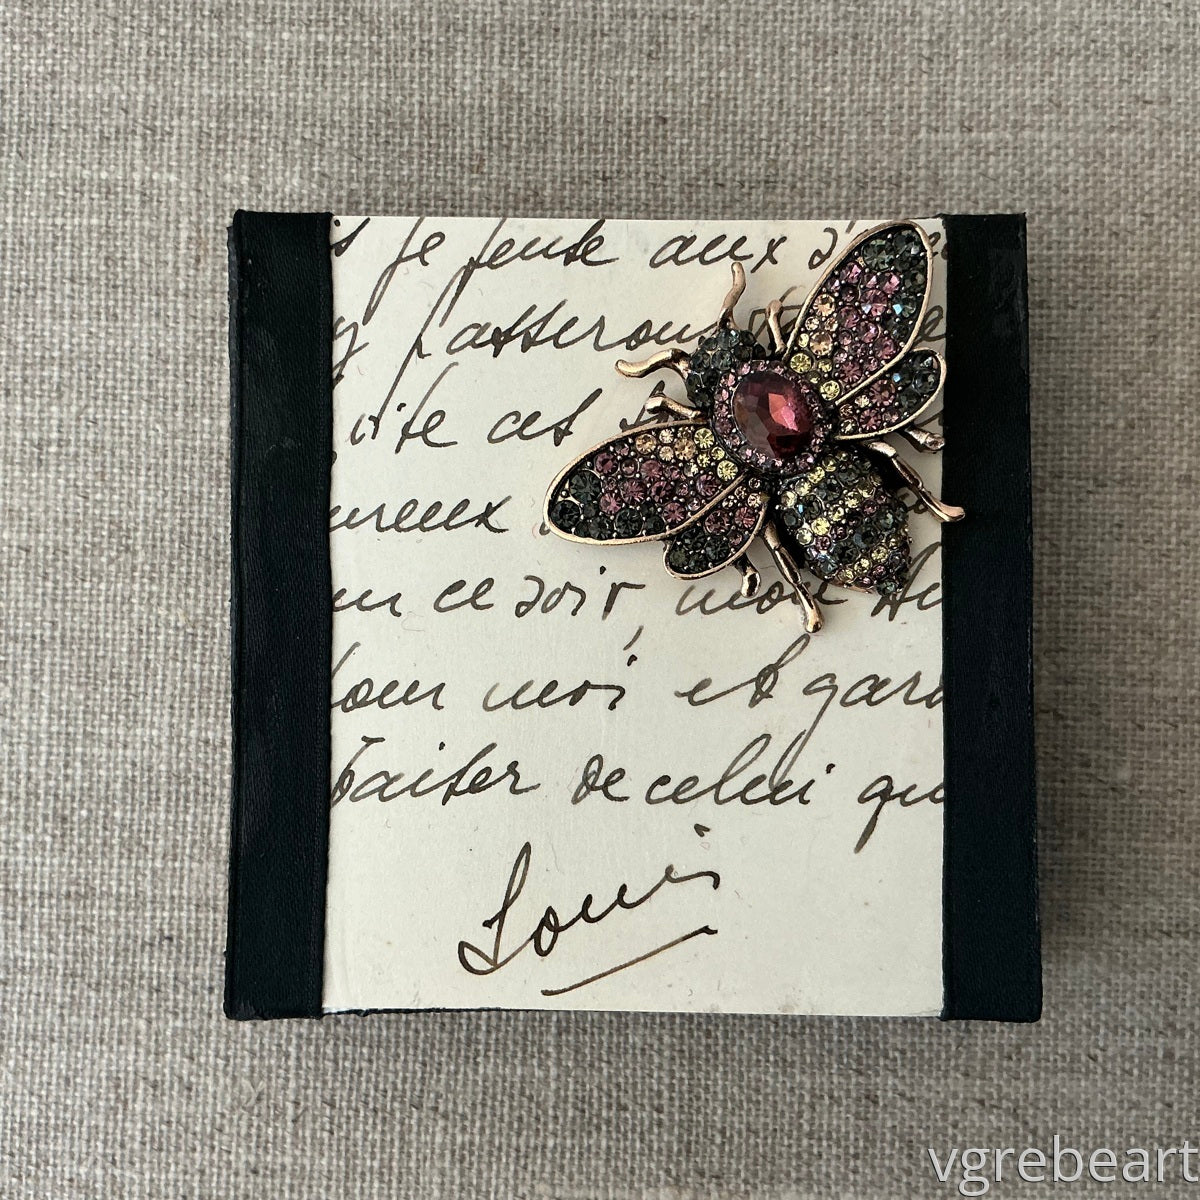 je pense aux
passerons
vite cet
ureux
ce soir, mon
pour moi et gard
baiser de celui qu
Louis
vgrebeart